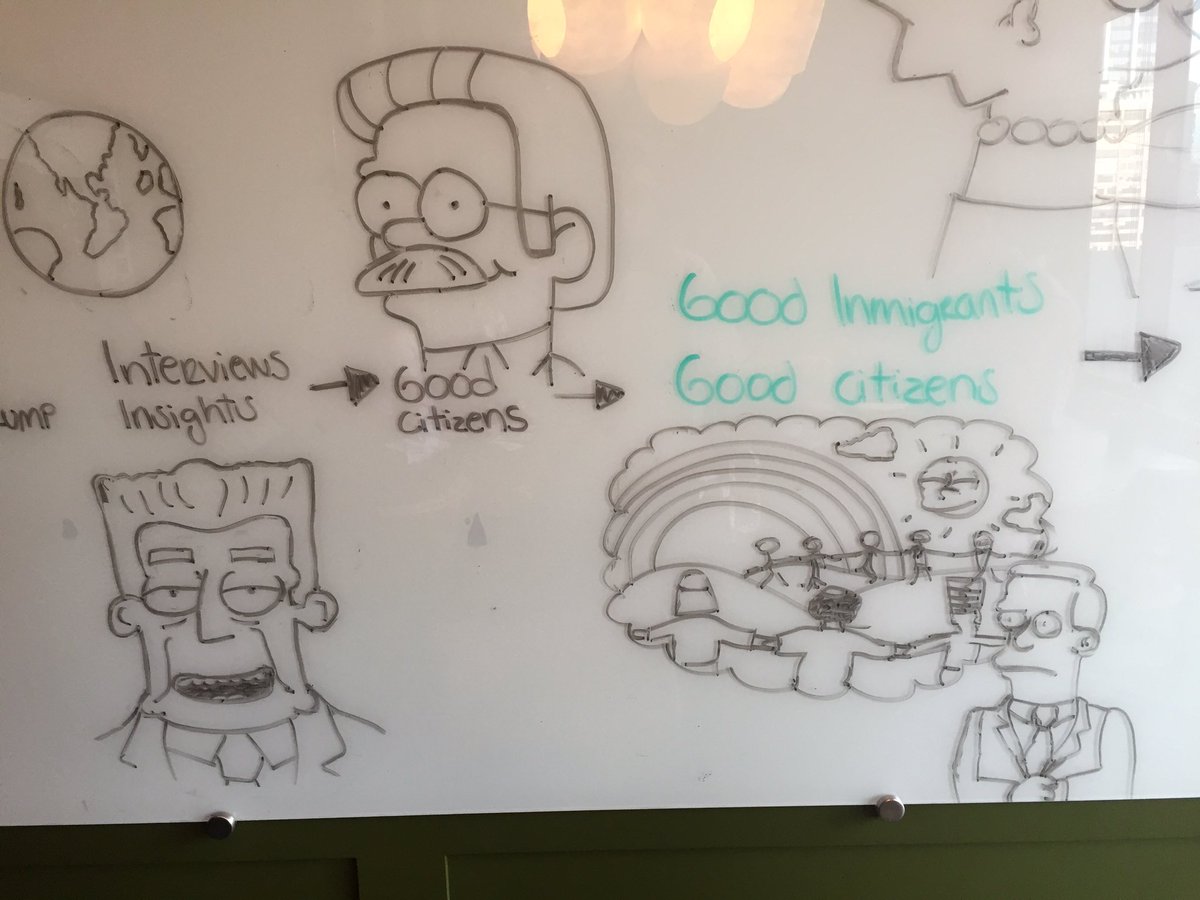 Interviews
Insights
Good
citizens
Good Inmigrants
Good citizens